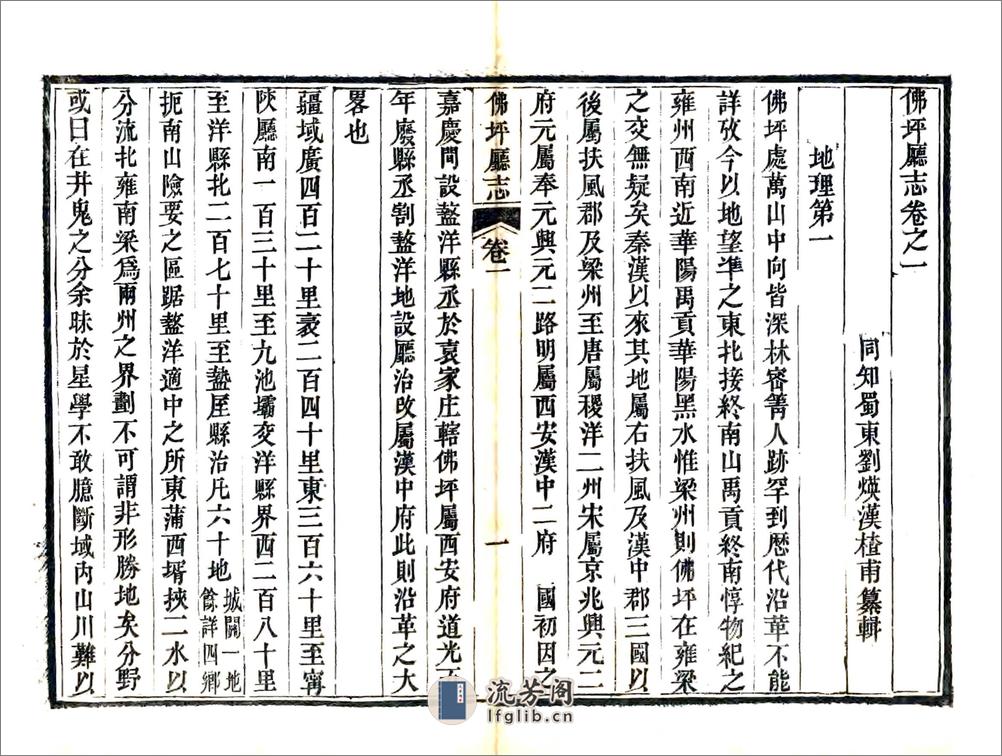 佛坪廳志卷之一
同知蜀東劉煐漢楂甫纂輯
地理第一
佛坪處萬山中向皆深林密箐人跡罕到歷代沿革不能
詳攷今以地望準之東北接終南山禹貢終南惇物紀之
雍州西南近華陽禹貢華陽黑水惟梁州則佛坪在雍梁
之交無疑矣秦漢以來其地屬右扶風及漢中郡三國以
後屬扶風郡及梁州至唐屬稷洋二州宋屬京兆興元二
府元屬奉元興元二路明屬西安漢中二府 國初因之
佛坪廳志 卷一 一
嘉慶間設盩洋縣丞於袁家庄轄佛坪屬西安府道光五
年廢縣丞割盩洋地設廳治改屬漢中府此則沿革之大
畧也
疆域廣四百二十里袤二百四十里東三百六十里至甯
陜廳南一百三十里至九池壩交洋縣界西二百八十里
至洋縣北二百七十里至盩厔縣治凡六十地城關一地
餘詳四鄉
扼南山險要之區踞盩洋適中之所東蒲西壻挾二水以
分流北雍南梁爲兩州之界劃不可謂非形勝地矣分野
或曰在井鬼之分余昧於星學不敢臆斷域內山川難以
流芳閣
lfglib.cn